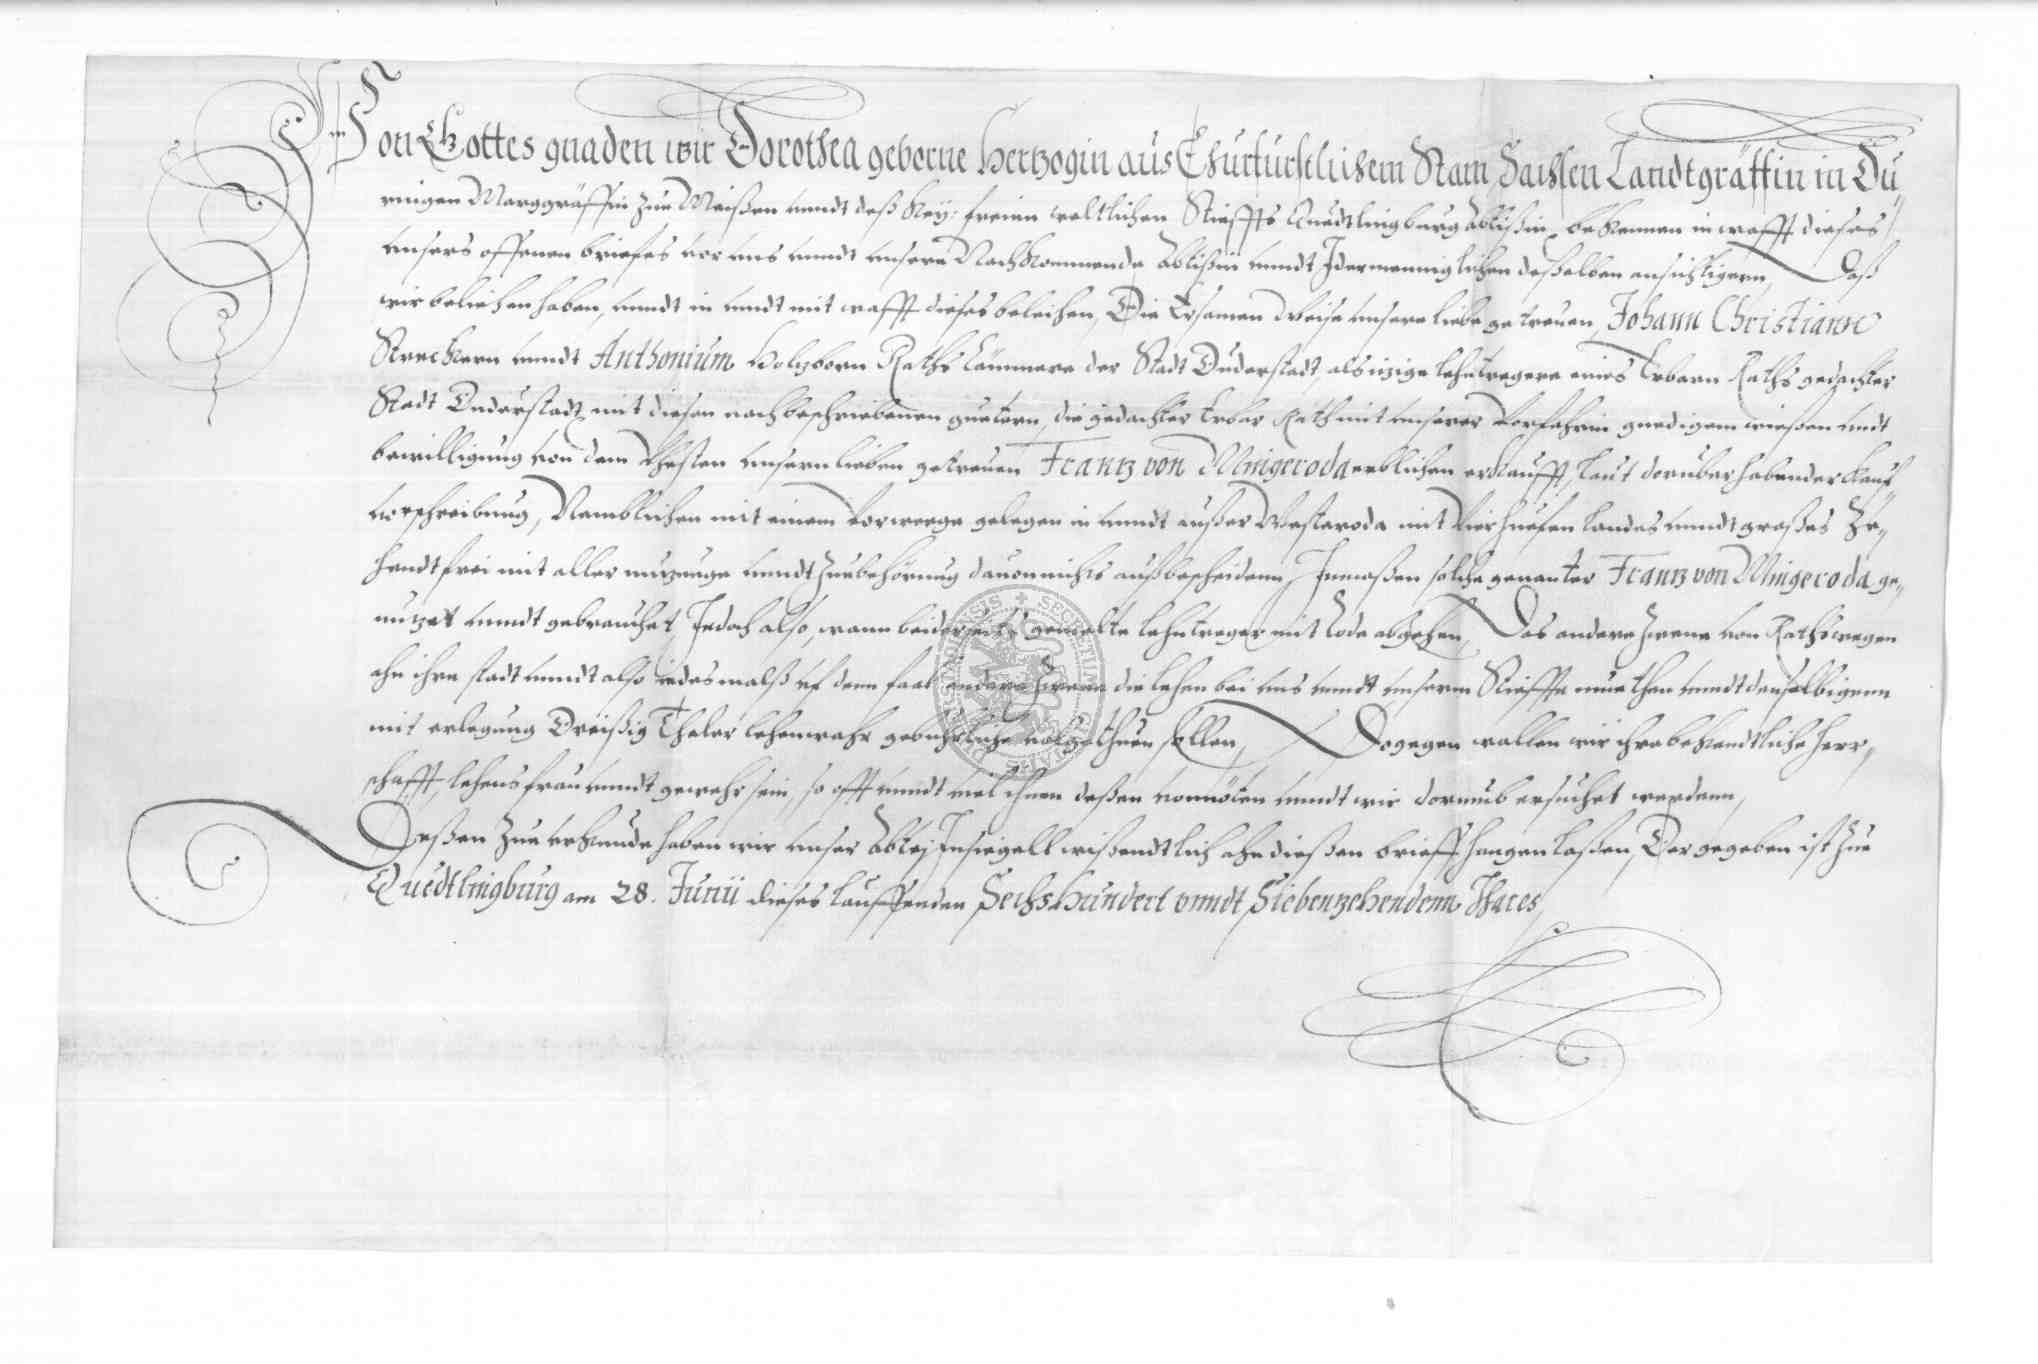 Von Gottes gnaden wir Dorothea geborne Hertzogin aus Churfurstlichem Stam Sachsen Landtgräffin in Du-
ringen Marggräffin zue Meißen unndt deß Key: freien weltlichen Stieffts Quedtlingburg Äbtißin, bekennen in crafft dieses
unsers offenen briefes vor uns unndt unsere Nachkommende Äbtißin unndt Idermenniglichen deßelben ansichtigern, Daß
wir beliehen haben, unndt in undt mit crafft dieses beleihen, Die Ersamen Weise unsere liebe getreuen, Johann Christiann
Streckern unndt Anthonium Holzborn Raths Cämmere der Stadt Duderstadt, als itzige lehntregere eines Erbarn Raths gedachter
Stadt Duderstadt, mit diesen nachbeschriebenen guetern, die gedachter Erbar Rath mit unserer Vorfahrin gnedigem wießen undt
bewilligung von dem Vhesten unsern lieben getreuen Frantz von Mingeroda erblichen erkaufft, laut doruber habender Kauf-
vorschreibung, Namblichen mit einem Vorwerge gelegen in unndt außer Westeroda mit Vier huefen landes unndt großes Ze-
hendt frei mit aller nutzunge unndt Zuebehörung dauon nichts außbescheidenn, Inmaßen solche genanter Frantz von Mingeroda ge-
nutzet unndt gebrauchet, Jedoch also, wann beiderseits gemelte lehntreger mit Tode abgehen, Das andere Zwene von Raths wegen
ahn ihre stadt unndt also iedesmalß uf denn faal andere Zwene die lehen bei uns unndt unserm Stieffte muethen unndt denselbigenn
mit erlegung Dreißig Thaler lehenwahr gebuhrliche volge thuen sollen, Dogegen wollen wir ihre bekendtliche herr-
schafft, lehensfrau unndt gewehr sein, so offt unndt viel ihnen deßen vonnöten unndt wir dorumb ersuchet werdenn,
Deßen Zue urkunde haben wir unser Abtej Insiegell wißendtlich ahn dießen brieff hangen laßen, Der gegeben ist Zue
Quedtlingburg am 28. Junii dieses lauffenden Sechshundert unndt Siebenzehendenn Jhares